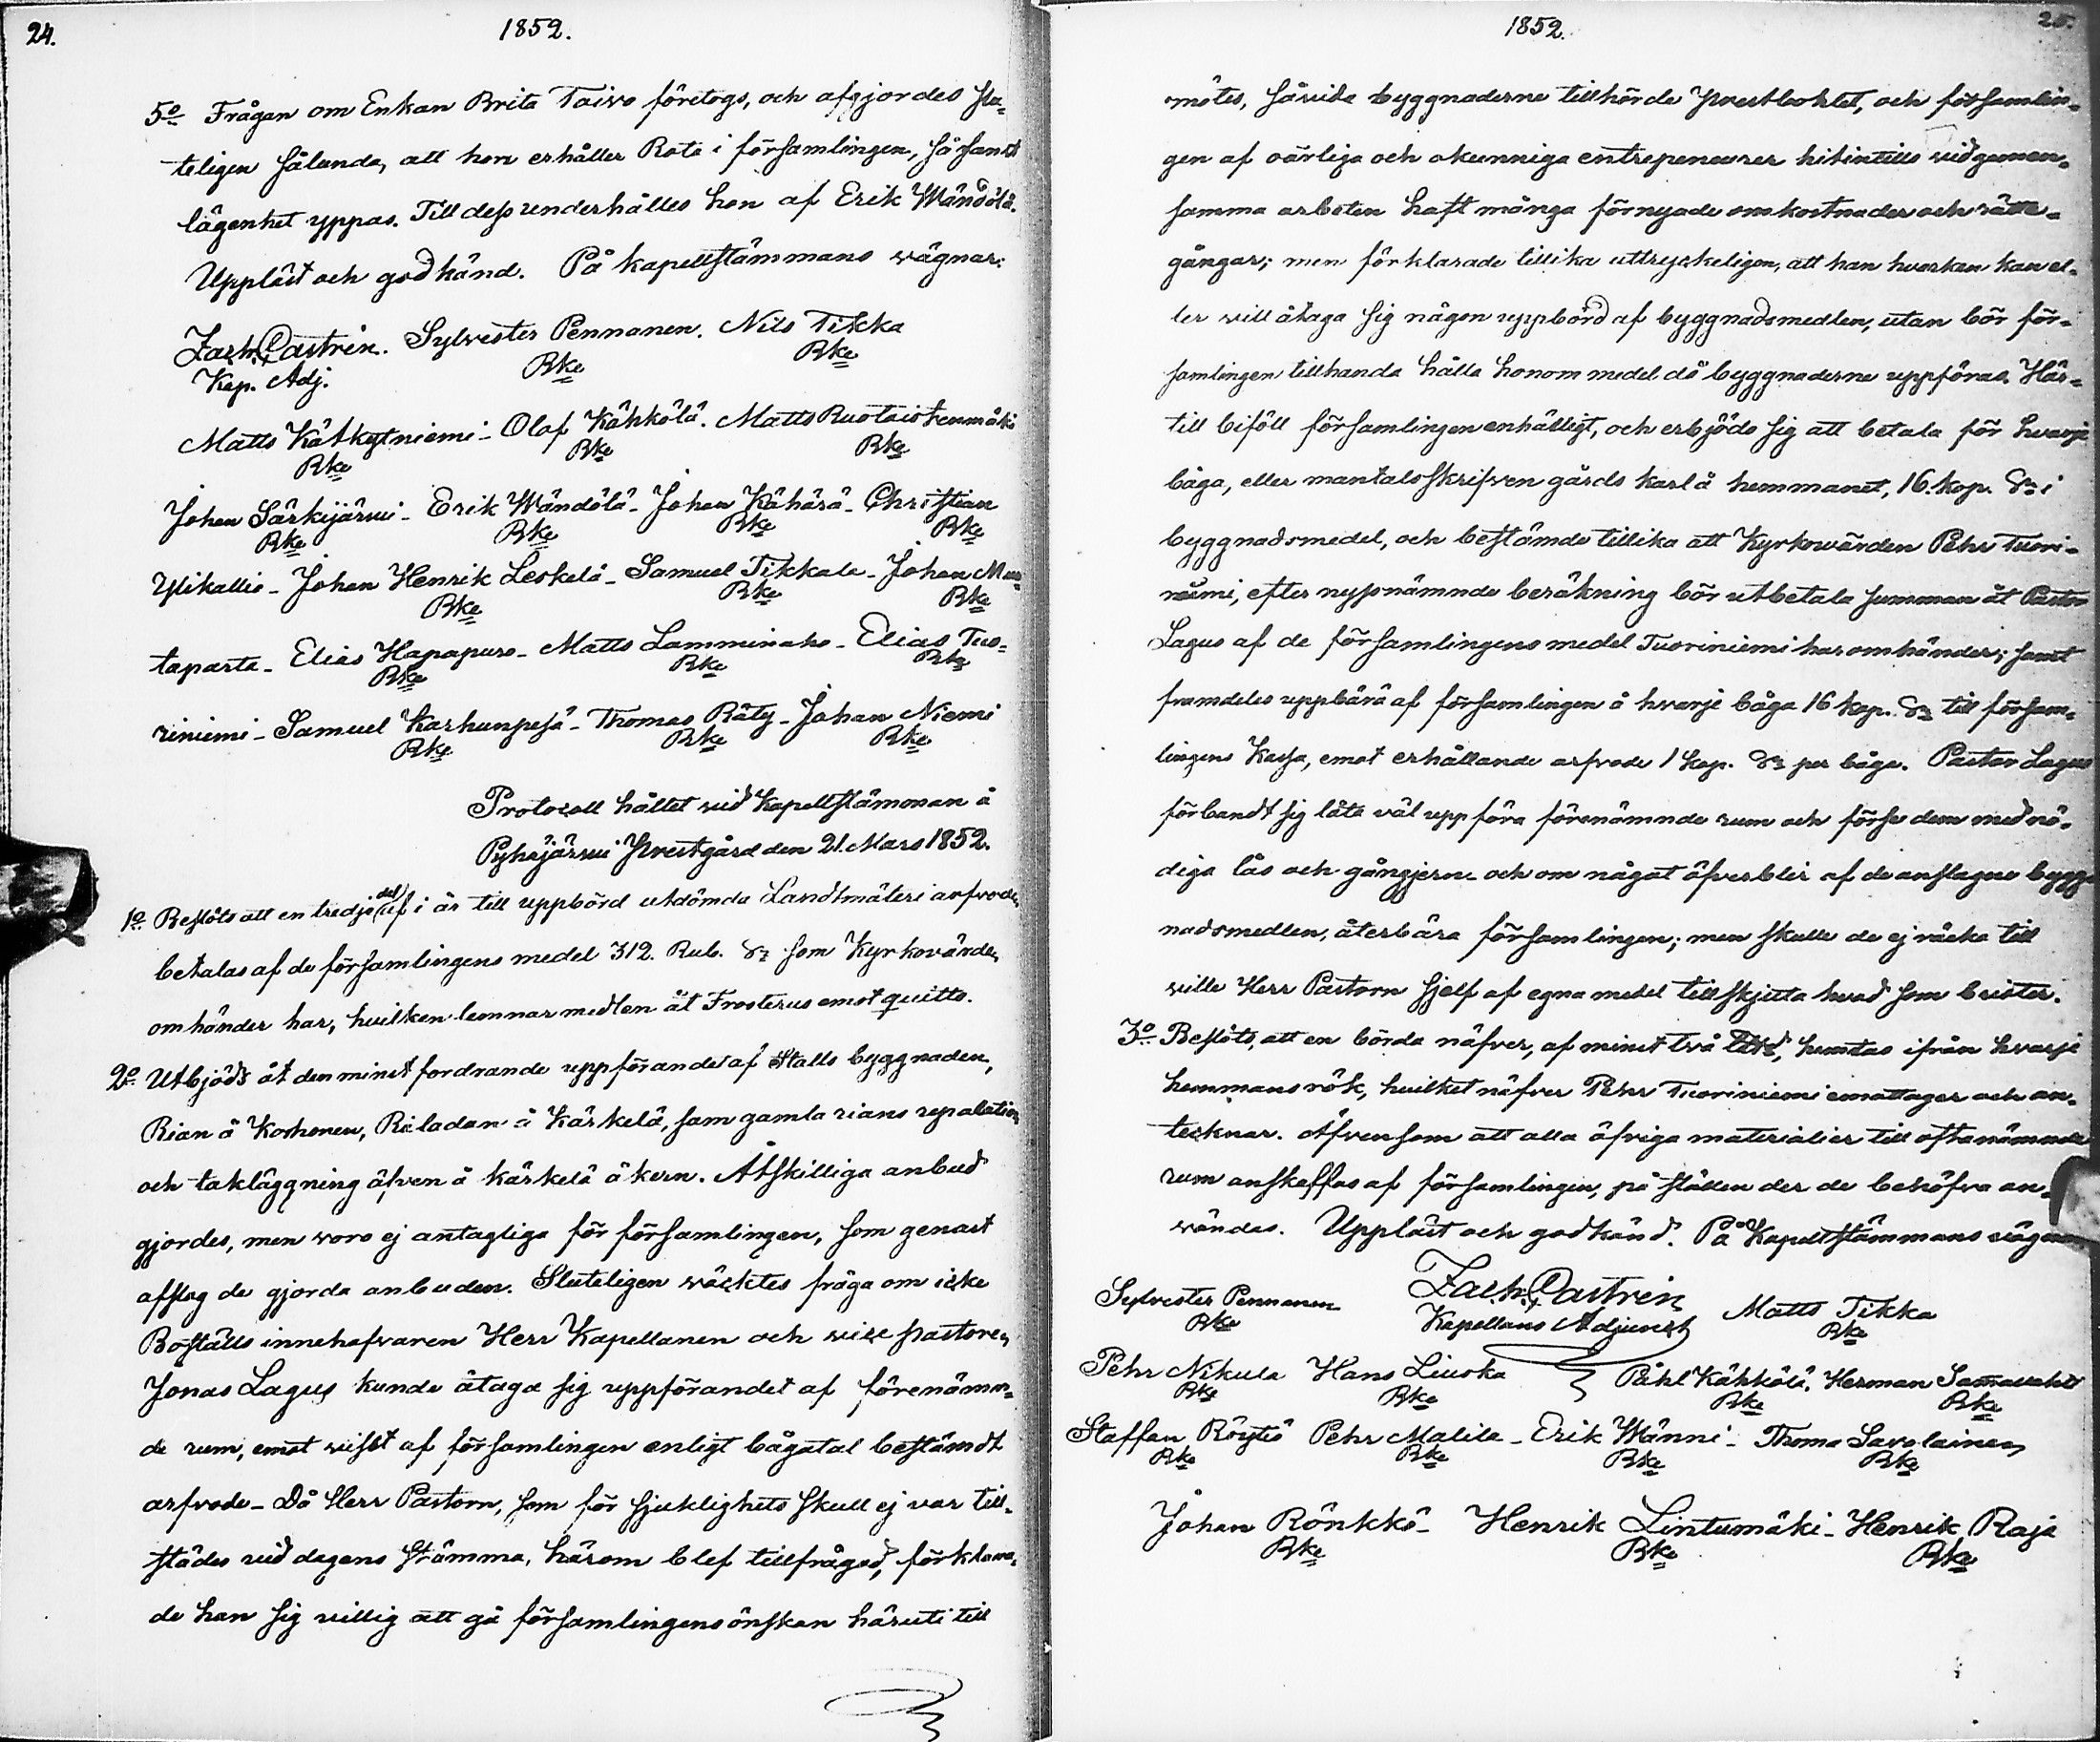 24.
1852.
5o Frågan om Enkan Brita Taivo företogs, och afgjordes slu-
teligen sålunda, att hon erhåller Rota i församlingen, så snart
lägenhet yppas. Till dess underhålles hon af Erik Wändölä.
Uppläst och godkänd. På kapellstämmans vägnar:
Zach. Castrén. Sylvester Pennanen. Nils Tikka
Kap. Adj. Bke Bke
Matts Kätkytniemi - Olof Kähkölä. Matts Ruotaistenmäki
Bke Bke Bke
Johan Särkijärvi - Erik Wändölä - Johan Kähärä - Christian
Bke Bke Bke Bke
Ylikallio - Johan Henrik Leskelä - Samuel Tikkala - Johan Mus-
Bke Bke Bke
taparta - Elias Hapapuro - Matts Lamminaho - Elias Tuo-
Bke Bke Bke
riniemi - Samuel Karhunpesä - Thomas Räty - Johan Niemi
Bke Bke Bke
Protocoll hållet vid Kapellstämman å
Pyhäjärvi Prestgård den 21. Mars 1852.
1o Beslöts att en tredje del af i år till uppbörd utdömda Landtmäteri arfvode,
betalas af de församlingens medel 312. Rub. Sr som Kyrkovärden
omhänder har, hvilken lemnar medlen åt Frosterus emot quitto.
2o Utbjöds åt den minst fordrande uppförandet af Stalls byggnaden,
Rian å Korhonen, Rialadan å Kärkelä, sam gamla rians repalation
och takläggning äfven å Kärkelä åkern. Åtskilliga anbud
gjordes, men voro ej antagliga för församlingen, som genast
afslog de gjorda anbuden. Sluteligen väcktes fråga om icke
Boställs innehafvaren Herr Kapellanen och vice pastoren
Jonas Lagus kunde åtaga sig uppförandet af förenämn-
de rum, emot visst af församlingen enligt bågatal bestämdt
arfvode - Då Herr Pastorn, som för sjuklighets skull ej var till-
städes vid dagens stämma, härom blef tillfrågad, förklara-
de han sig villig att gå församlingens önskan häruti till
1852.
25.
mötes, såvida byggnaderne tillhörde Prestbolet, och församlin-
gen af oärliga och okunniga entrepeneurer hitintills vid gemen-
samma arbeten haft många förnyade omkostnader och rätte-
gångar; men förklarade tillika uttryckeligen, att han hvarken kan el-
ler vill åtaga sig någon uppbörd af byggnadsmedlen, utan bör för-
samlingen tillhanda hålla honom medel då byggnaderne uppföras. Här-
till biföll församlingen enhälligt, och erbjöds sig att betala för hvarje
båga, eller mantalsskrifven gårds karl å hemmanet, 16. kop. Sr i
byggnadsmedel, och bestämde tillika att Kyrkovärden Pehr Tuori-
niemi, efter nyssnämnde beräkning bör utbetala summan åt Pastor
Lagus af de församlingens medel Tuoriniemi har omhänder; samt
framdeles uppbära af församlingen å hvarje båga 16 kop. Sr till försam-
lingens Kassa, emot erhållande arfvode 1 kop. Sr per båga. Pastor Lagus
förbandt sig låta väl uppföra förenämnde rum och förse dem med nö-
diga lås och gångjern och om något äfverblir af de anslagne bygg-
nadsmedlen, återbära församlingen; men skulle de ej räcka till
ville Herr Pastorn sjelf af egna medel tillskjuta hvad som brister.
3o Beslöts, att en börda näfver, af minst två , hemtas ifrån hvarje
hemmans rök, hvilket näfver Pehr Tuoriniemi emottager och an-
tecknar. Äfvensom att alla öfriga materialier till oftanämnde
rum anskaffas af församlingen, på ställen der de behöfva an-
wändas. Uppläst och godkänd. På Kapellstämmans vägnar
Sylvester Pennanen Zach. Castrén Matts Tikka
Bke Kapellans Adjunct Bke
Pehr Nikula Hans Liuska Påhl Kähkölä. Herman
Bke Bke Bke Bke
Staffan Röytiö Pehr Malila - Erik Männi - Thomas Savolainen
Bke Bke Bke Bke
Johan Rönkkö - Henrik Lintumäki - Henrik Raja
Bke Bke Bke